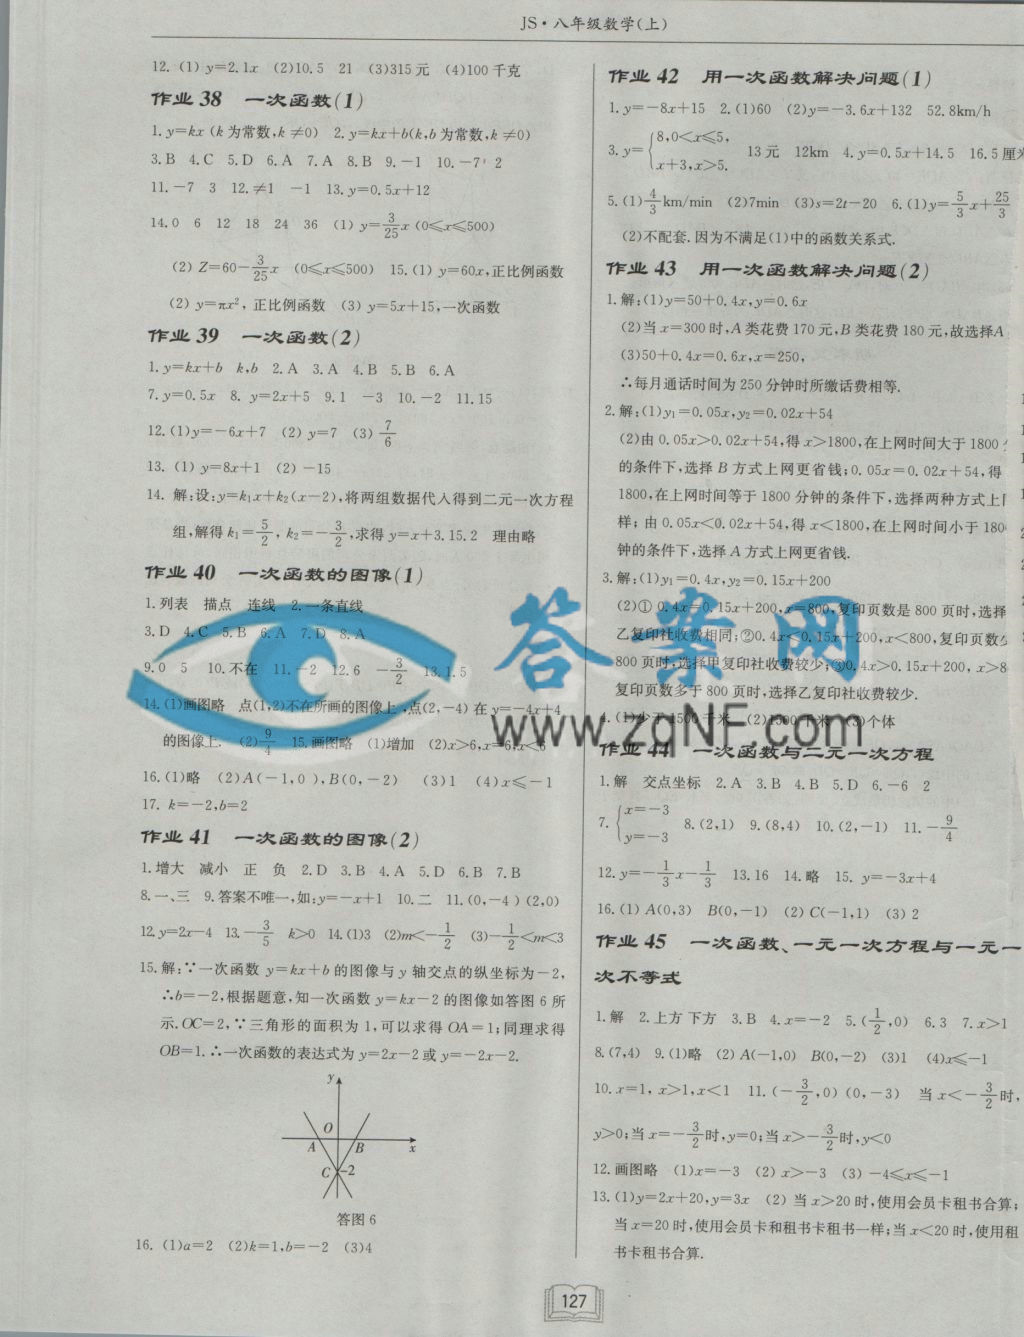 JS·八年级数学(上)
12. (1) y=2.1x (2)10.5 21 (3)315元 (4)100千克
作业38 一次函数(1)
1. y=kx (k为常数,k≠0) 2. y=kx+b(k,b为常数,k≠0)
3. B 4. C 5. D 6. A 7. A 8. B 9. -1 10. -7 2
11. -7 3 12. ≠1 -1 13. y=0.5x+12
14. 0 6 12 18 24 36 (1) y=3/25x (0≤x≤500)
(2) Z=60-3/25x (0≤x≤500) 15. (1) y=60x,正比例函数
(2) y=πx²,正比例函数 (3) y=5x+15,一次函数
作业39 一次函数(2)
1. y=kx+b k,b 2. A 3. A 4. B 5. B 6. A
7. y=0.5x 8. y=2x+5 9. 1 -3 10. -2 11. 15
12. (1)y=-6x+7 (2) y=7 (3) 7/6
13. (1) y=8x+1 (2) -15
14. 解:设:y=k₁x+k₂(x-2),将两组数据代入得到二元一次方程
组,解得k₁=5/2, k₂=-3/2,求得y=x+3. 15. 2 理由略
作业40 一次函数的图像(1)
1. 列表 描点 连线 2. 一条直线
3. D 4. C 5. B 6. A 7. D 8. A
9. 0 5 10. 不在 11. -2 12. 6 -3/2 13. 1.5
14. (1)画图略 点(1,2)不在所画的图像上,点(2,-4)在y=-4x+4
的图像上. (2)9/4 15. 画图略 (1)增加 (2)x>6,x=6,x<6
16. (1)略 (2)A(-1,0),B(0,-2) (3)1 (4)x≤-1
17. k=-2,b=2
作业41 一次函数的图像(2)
1. 增大 减小 正 负 2. D 3. B 4. A 5. D 6. B 7. B
8. 一、三 9. 答案不唯一,如:y=-x+1 10. 二 11. (0,-4) (2,0)
12. y=2x-4 13. -3/5 k>0 14. (1)3 (2)m<-1/2 (3)-1/2<m<3
15. 解:∵一次函数y=kx+b的图像与y轴交点的纵坐标为-2,
∴b=-2,根据题意,知一次函数y=kx-2的图像如答图6所
示.OC=2,∵三角形的面积为1,可以求得OA=1;同理求得
OB=1.∴一次函数的表达式为y=2x-2或y=-2x-2.
y
O
A B x
C -2
答图6
16. (1)a=2 (2)k=1,b=-2 (3)4
作业42 用一次函数解决问题(1)
1. y=-8x+15 2. (1)60 (2)y=-3.6x+132 52.8km/h
3. y={8,0<x≤5, x+3,x>5. 13元 12km 4. y=0.5x+14.5 16.5厘米
5. (1)4/3km/min (2)7min (3)s=2t-20 6. (1)y=5/3x+25/3
(2)不配套.因为不满足(1)中的函数关系式.
作业43 用一次函数解决问题(2)
1. 解:(1)y=50+0.4x,y=0.6x
(2)当x=300时,A类花费170元,B类花费180元,故选择A
(3)50+0.4x=0.6x,x=250,
∴每月通话时间为250分钟时所缴话费相等.
2. 解:(1)y₁=0.05x,y₂=0.02x+54
(2)由0.05x>0.02x+54,得x>1800,在上网时间大于1800
的条件下,选择B方式上网更省钱;0.05x=0.02x+54,得
1800,在上网时间等于1800分钟的条件下,选择两种方式上
样;由0.05x<0.02x+54,得x<1800,在上网时间小于180
钟的条件下,选择A方式上网更省钱.
3. 解:(1)y₁=0.4x,y₂=0.15x+200
(2)①0.4x=0.15x+200,x=800,复印页数是800页时,选择
乙复印社收费相同;②0.4x<0.15x+200,x<800,复印页数
800页时,选择甲复印社收费较少;③0.4x>0.15x+200,x>8
复印页数多于800页时,选择乙复印社收费较少.
4. (1)少于1500千米 (2)1500千米 (3)个体
作业44 一次函数与二元一次方程
1. 解 交点坐标 2. A 3. B 4. B 5. D 6. -6 2
7. {x=-3 y=-3 8. (2,1) 9. (8,4) 10. (2,-1) 11. -9/4
12. y=-1/3x-1/3 13. 16 14. 略 15. y=-3x+4
16. (1) A(0,3) B(0,-1) (2) C(-1,1) (3) 2
作业45 一次函数、一元一次方程与一元一
次不等式
1. 解 2. 上方 下方 3. B 4. x=-2 5. (1/2,0) 6. 3 7. x>1
8. (7,4) 9. (1)略 (2) A(-1,0) B(0,-2) (3)1 (4)x≤-1
10. x=1, x>1,x<1 11. (-3/2,0) (0,-3) 当x<-3/2时,
y>0;当x=-3/2时,y=0;当x>-3/2时,y<0
12. 画图略 (1)x=-3 (2) x>-3 (3) -4≤x≤-1
13. (1)y=2x+20,y=3x (2) 当x>20时,使用会员卡租书合算;
当x=20时,使用会员卡和租书卡租书一样;当x<20时,使用租
书卡租书合算.
127
答案网
www.zqNF.com